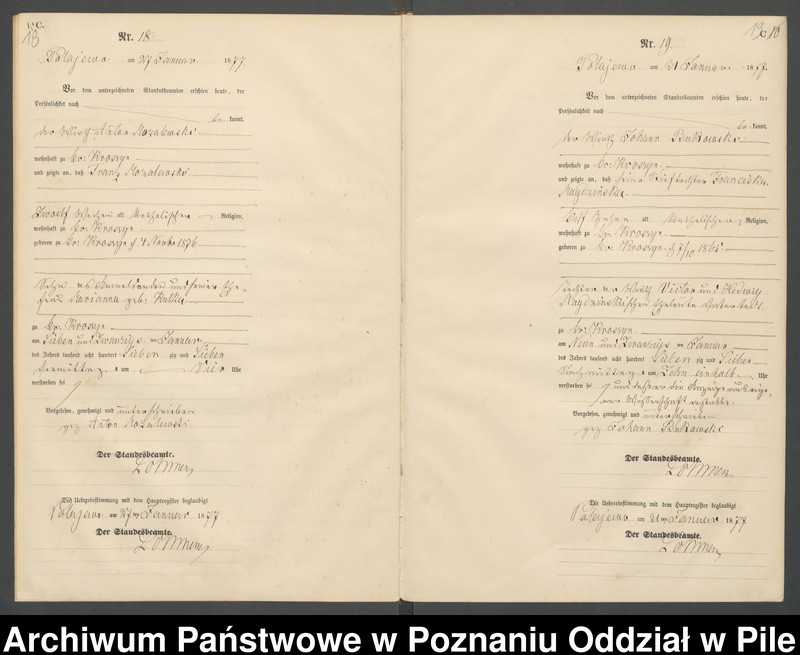 C.
13
Nr. 18
Polajewo am 27 Januar 1877
Vor dem unterzeichneten Standesbeamten erschien heute, der
Persönlichkeit nach
be kannt,
der Wirth Anton Kozalewski
wohnhaft zu Gr: Krossyn
und zeigte an, daß Franz Kozalewski
Zwoelf Wochen alt katholischer Religion,
wohnhaft zu Gr: Krossyn
geboren zu Gr: Krossyn
Sohn des Anmeldenden und seiner Ehe-
frau Marianna geb:
zu Gr: Krossyn
am Sieben und Zwanzigs ten Januar
des Jahres tausend acht hundert Sieben zig und Sieben
Vormittags um Vier Uhr
verstorben sei
Vorgelesen, genehmigt und unterschrieben
gez Anton Kozalewski
Der Standesbeamte.
Die Uebereinstimmung mit dem Hauptregister beglaubigt
Polajewo am 27 ten Januar 1877
Der Standesbeamte.
Nr. 19.
Polajewo am 31 Januar 1877.
Vor dem unterzeichneten Standesbeamten erschien heute, der
Persönlichkeit nach
be kannt,
der Wirth Johann Bukowski
wohnhaft zu Gr: Krossyn
und zeigte an, daß seine Stieftochter Franciska
Elf Jahre alt katholischer Religion,
wohnhaft zu Gr: Krossyn
geboren zu Gr: Krossyn 1865
Tochter der Wirth Victor und Hedwig
Eheleute
zu Gr: Krossyn
am Neun und Zwanzigs ten Januar
des Jahres tausend acht hundert Sieben zig und Sieben
Nachmittags um Zehn einhalb Uhr
verstorben sei und dessen die Anzeige aus eige-
ner Wissenschaft erstatte.
Vorgelesen, genehmigt und unterschrieben
gez Johann Bukowski
Der Standesbeamte.
Die Uebereinstimmung mit dem Hauptregister beglaubigt
Polajewo am 31 ten Januar 1877
Der Standesbeamte.
Archiwum Państwowe w Poznaniu Oddział w Pile